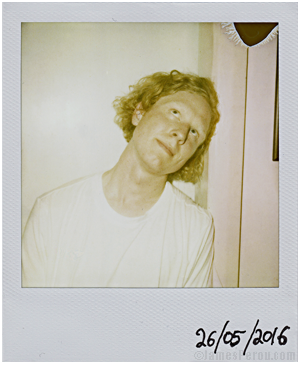 26/05/2016
©JamesPerou.com